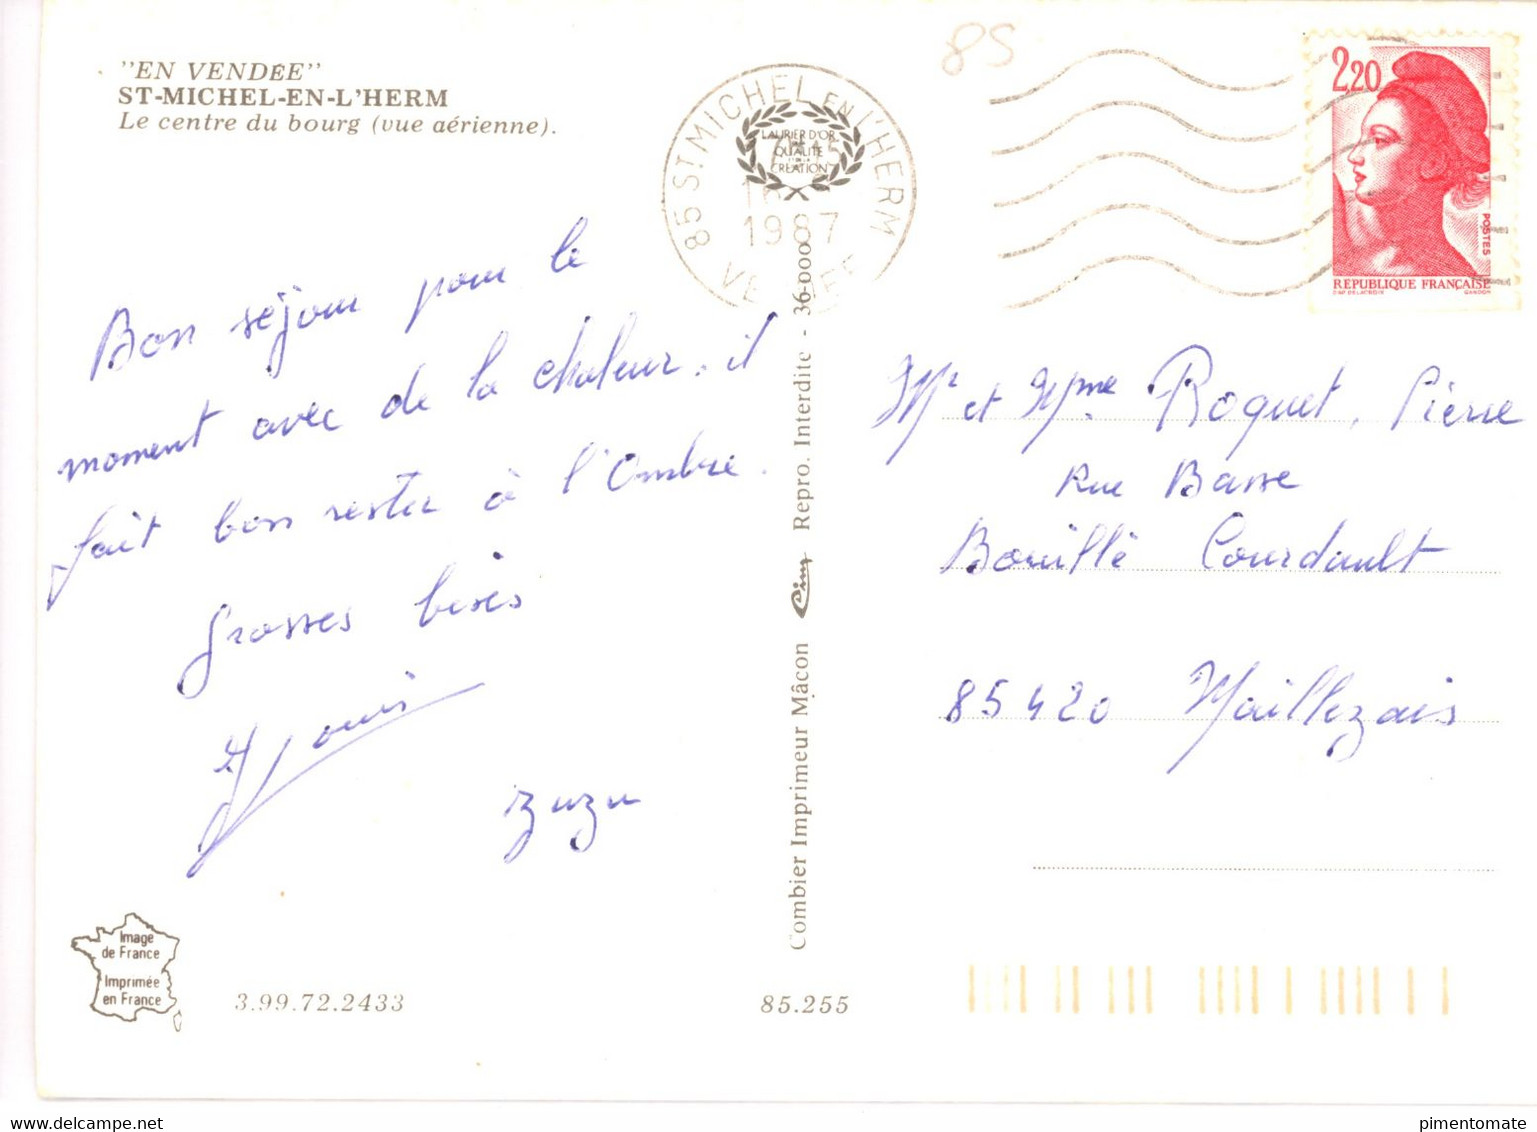 "EN VENDÉE"
ST-MICHEL-EN-L'HERM
Le centre du bourg (vue aérienne).
85
85 ST MICHEL EN L'HERM
LAURIER D'OR
QUALITÉ
CRÉATION
1987
VENDEE
2,20
POSTES
REPUBLIQUE FRANÇAISE
Bon séjour pour le
moment avec de la chaleur. il
fait bon rester à l'Ombre.
grosses bises
Zuzu
Mr et Mme Roquet, Pierre
Rue Basse
Bouillé Courdault
85420 Maillezais
Combier Imprimeur Mâcon Cim Repro. Interdite - 36-000
Image
de France
Imprimée
en France
3.99.72.2433
85.255
pimentomate